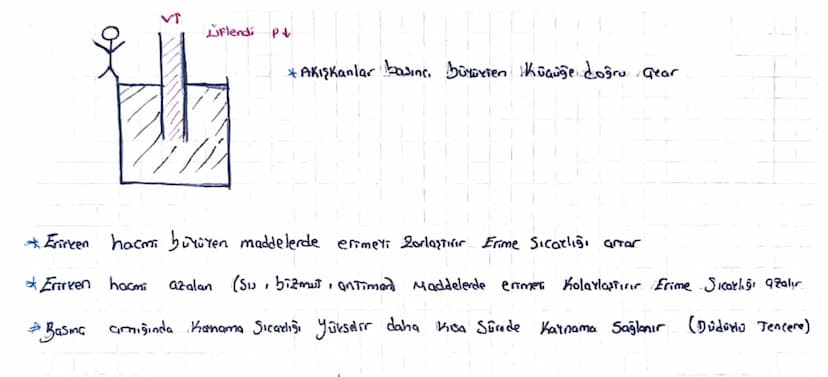 V↑
üflendi P↓
* Akışkanlar basıncı büyükten küçüğe doğru akar
* Erirken hacmi büyüyen maddelerde erimeyi zorlaştırır Erime Sıcaklığı artar
* Erirken hacmi azalan (su, bizmut, antimon) Maddelerde erimeyi Kolaylaştırır Erime Sıcaklığı azalır
* Basınç arttığında Kaynama Sıcaklığı Yükselir daha Kısa Sürede Kaynama Sağlanır (Düdüklü Tencere)